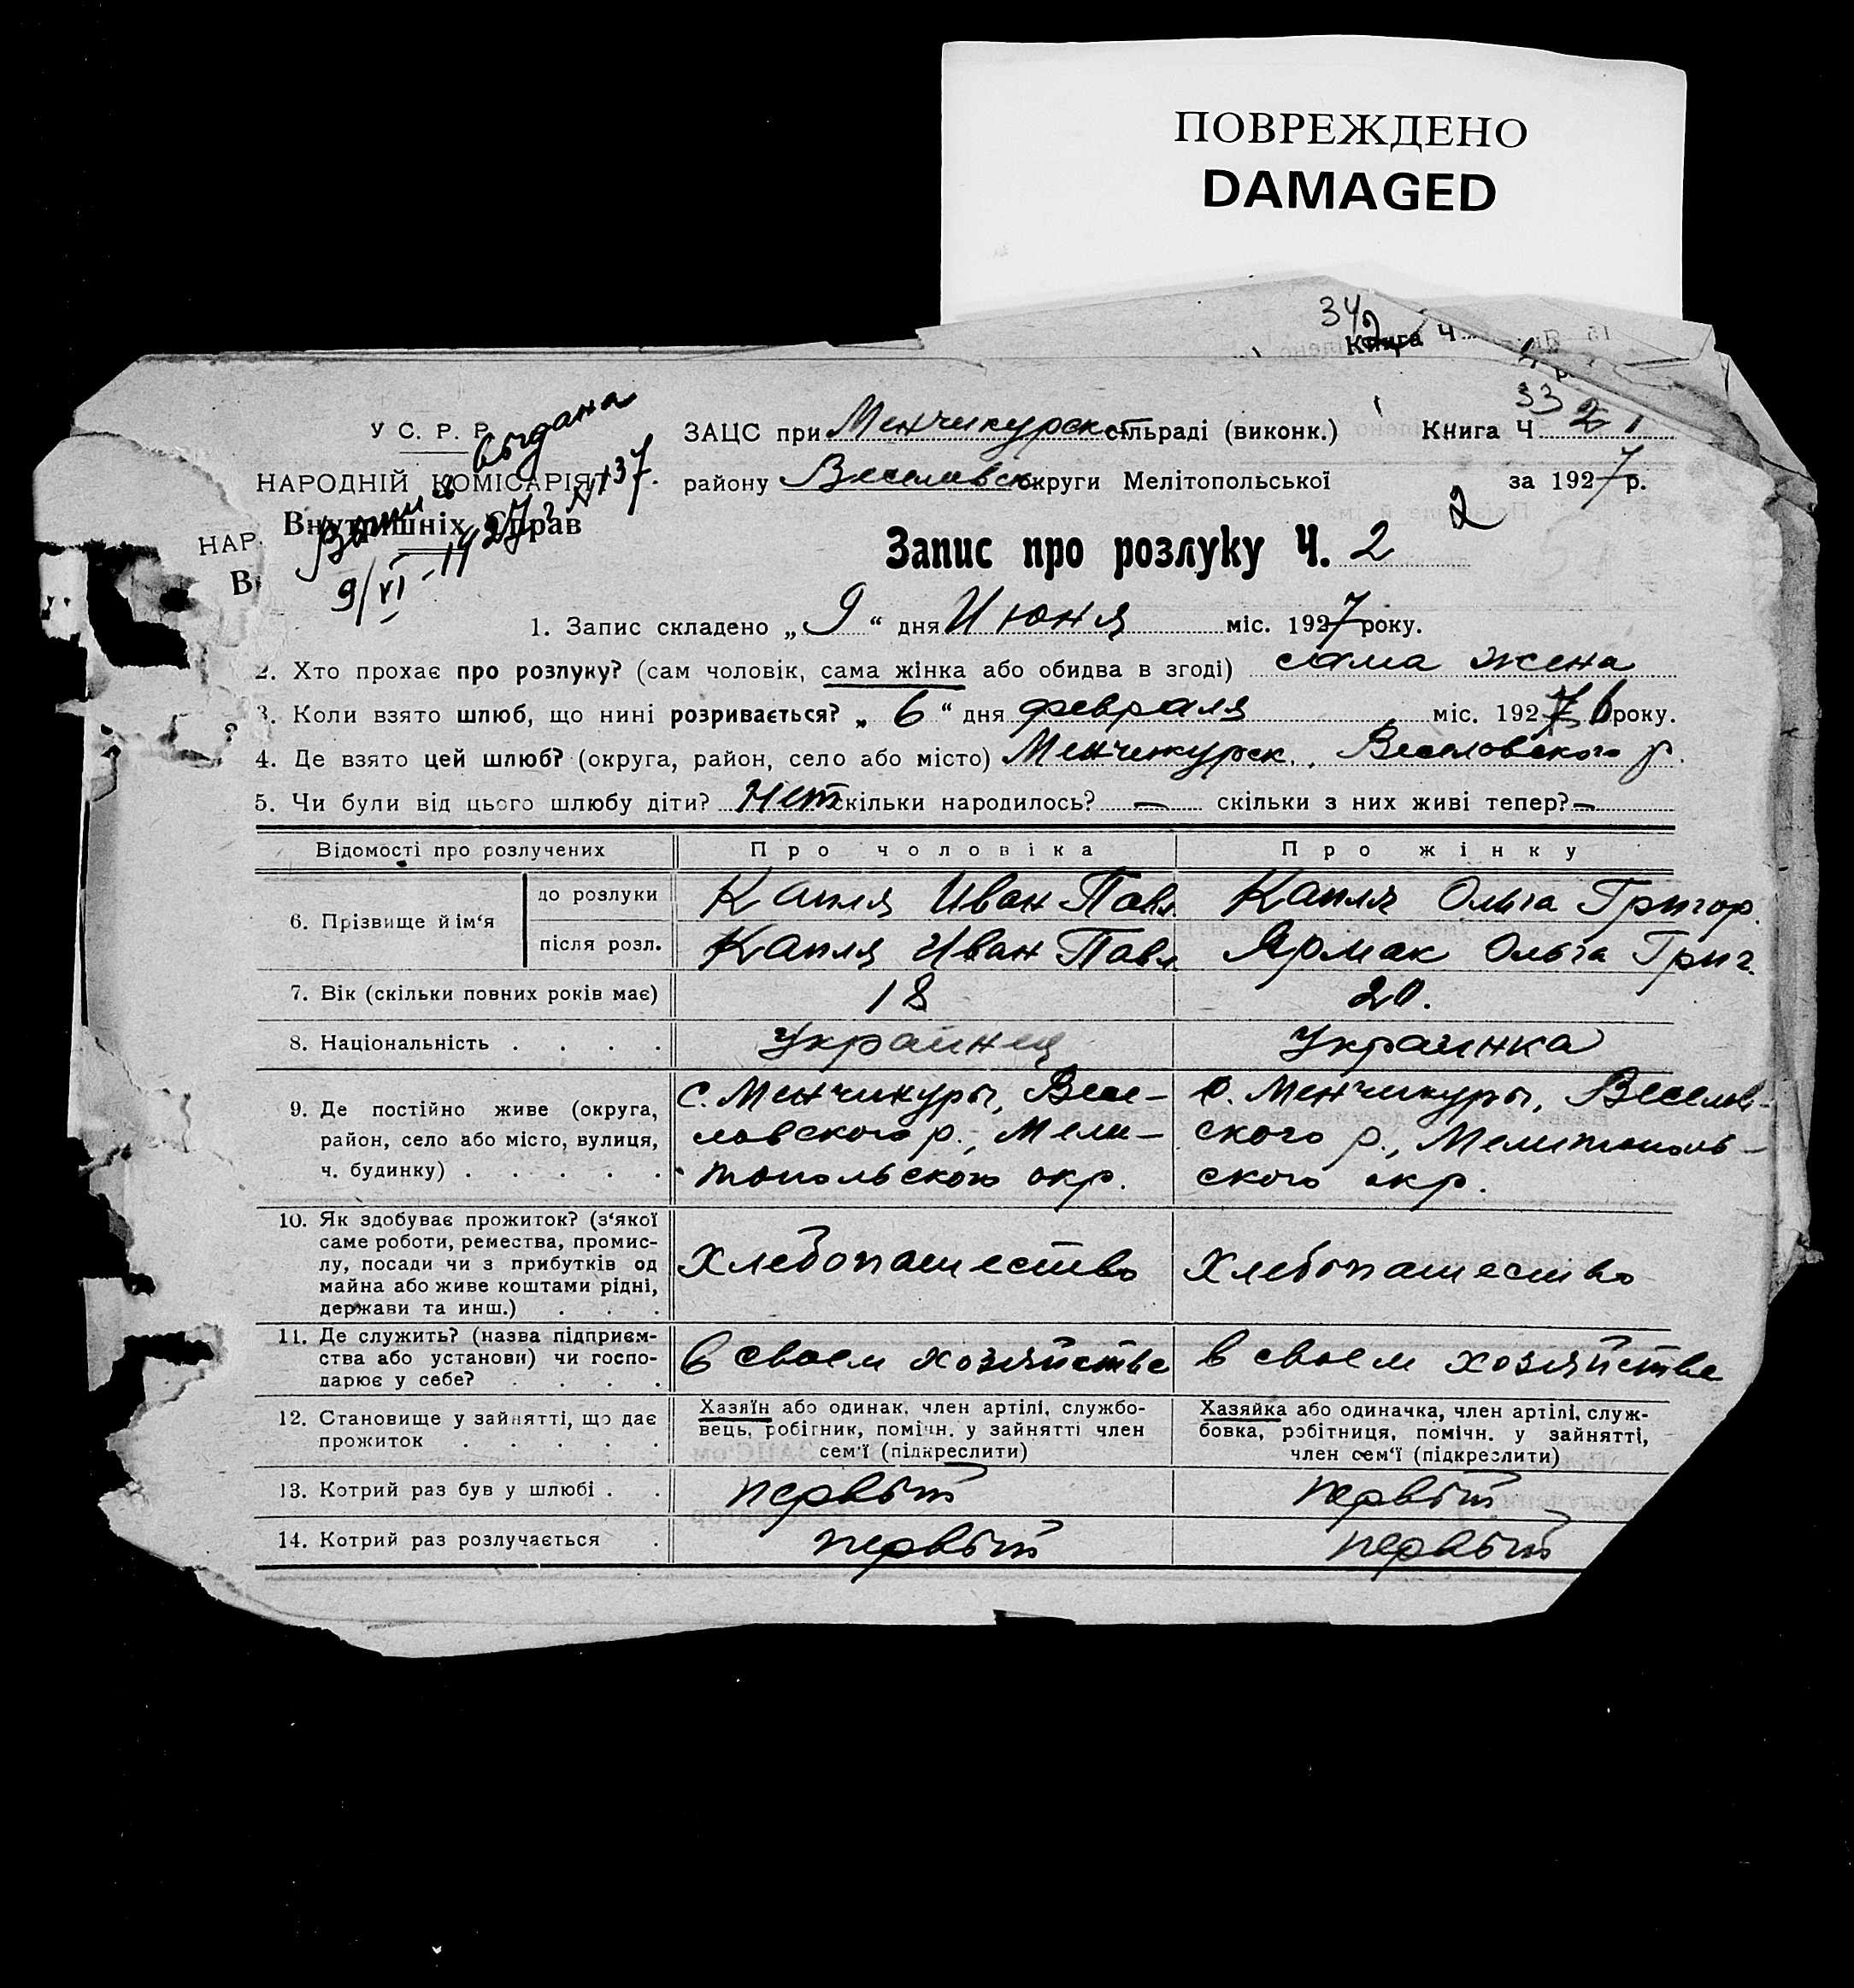 ПОВРЕЖДЕНО
DAMAGED
34
Книга Ч
33
У С. Р. Р.
НАРОДНІЙ КОМІСАРІЯТ
Внутрішніх Справ
выдана
9/VI-1927 г N 137.
НАР.
В
ЗАЦС при Менчикурск. сільраді (виконк.) Книга Ч 2 1
району Веселовск. округи Мелітопольської за 1927 р.
2
Запис про розлуку Ч. 2
1. Запис складено „ 9 “ дня Июня міс. 1927 року.
2. Хто прохає про розлуку? (сам чоловік, сама жінка або обидва в згоді) сама жена
3. Коли взято шлюб, що нині розривається? „ 6 “ дня февраля міс. 1926 року.
4. Де взято цей шлюб? (округа, район, село або місто) Менчикурск., Веселовского р.
5. Чи були від цього шлюбу діти? Нет скільки народилось? — скільки з них живі тепер? —
Відомості про розлучених Про чоловіка Про жінку
6. Прізвище й ім‘я
до розлуки Капля Иван Павл. Капля Ольга Григор.
після розл. Капля Иван Павл. Ярмак Ольга Григ.
7. Вік (скільки повних років має) 18 20.
8. Національність . . . . Украинец Украинка
9. Де постійно живе (округа, район, село або місто, вулиця, ч. будинку) . . . . .
с. Менчикуры, Весе-
ловского р., Мели-
топольского окр.
с. Менчикуры, Веселов-
ского р., Мелитополь-
ского окр.
10. Як здобуває прожиток? (з‘якої
саме роботи, ремества, промис-
лу, посади чи з прибутків од
майна або живе коштами рідні,
держави та инш.) . . .
Хлебопашество Хлебопашество
11. Де служить? (назва підприєм-
ства або установи) чи госпо-
дарює у себе? . . . .
в своем хозяйстве в своем хозяйстве
12. Становище у зайнятті, що дає
прожиток . . . . .
Хазяїн або одинак, член артілі, службо-
вець, робітник, помічн. у зайнятті член
сем‘ї (підкреслити)
Хазяйка або одиначка, член артілі, служ-
бовка, робітниця, помічн. у зайнятті,
член сем‘ї (підкреслити)
13. Котрий раз був у шлюбі . . первый первый
14. Котрий раз розлучається . первый первый